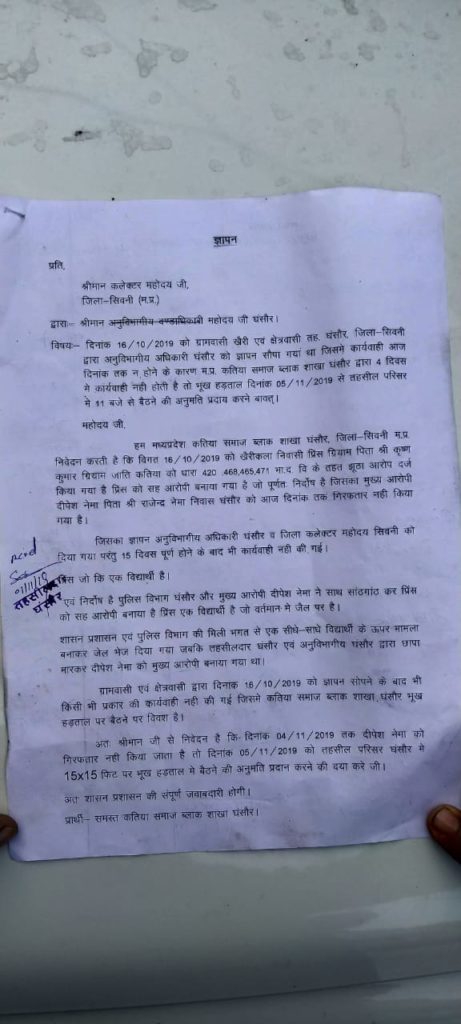 ज्ञापन
प्रति,
श्रीमान कलेक्टर महोदय जी,
जिला–सिवनी (म.प्र.)
द्वारा:– श्रीमान अनुविभागीय दण्डाधिकारी महोदय जी घंसौर।
विषय:– दिनांक 16/10/2019 को ग्रामवासी खैरी एवं क्षेत्रवासी तह. घंसौर, जिला–सिवनी
द्वारा अनुविभागीय अधिकारी घंसौर को ज्ञापन सौपा गया था जिसमे कार्यवाही आज
दिनांक तक न होने के कारण म.प्र. कतिया समाज ब्लाक शाखा घंसौर द्वारा 4 दिवस
मे कार्यवाही नही होती है तो भूख हड़ताल दिनांक 05/11/2019 से तहसील परिसर
मे 11 बजे से बैठने की अनुमति प्रदाय करने बावत्।
महोदय जी,
हम मध्यप्रदेश कतिया समाज ब्लाक शाखा घंसौर, जिला–सिवनी म.प्र.
निवेदन करती है कि विगत 16/10/2019 को खैरीकला निवासी प्रिंस ग्रियाम पिता श्री कृष्ण
कुमार ग्रियाम जाति कतिया को धारा 420 ,468,465,471 भा.द. वि के तहत झूठा आरोप दर्ज
किया गया है प्रिंस को सह आरोपी बनाया गया है जो पूर्णतः निर्दोष है जिसका मुख्य आरोपी
दीपेश नेमा पिता श्री राजेन्द्र नेमा निवास घंसौर को आज दिनांक तक गिरफतार नही किया
गया है।
जिसका ज्ञापन अनुविभागीय अधिकारी घंसौर व जिला कलेक्टर महोदय सिवनी को
दिया गया परंतु 15 दिवस पूर्ण होने के बाद भी कार्यवाही नही की गई।
प्रिंस जो कि एक विद्यार्थी है।
एवं निर्दोष है पुलिस विभाग घंसौर और मुख्य आरोपी दीपेश नेमा ने साथ सांठगांठ कर प्रिंस
को सह आरोपी बनाया है प्रिंस एक विद्यार्थी है जो वर्तमान मे जैल पर है।
शासन प्रशासन एवं पुलिस विभाग की मिली भगत से एक सीधे–साधे विद्यार्थी के ऊपर मामला
बनाकर जेल भेज दिया गया जबकि तहसीलदार घंसौर एवं अनुविभागीय घंसौर द्वारा छापा
मारकर दीपेश नेमा को मुख्य आरोपी बनाया गया था।
ग्रामवासी एवं क्षेत्रवासी द्वारा दिनांक 16/10/2019 को ज्ञापन सोपने के बाद भी
किसी भी प्रकार की कार्यवाही नही की गई जिसमे कतिया समाज ब्लाक शाखा घंसौर भूख
हड़ताल पर बैठने पर विवश है।
अतः श्रीमान जी से निवेदन है कि दिनांक 04/11/2019 तक दीपेश नेमा को
गिरफतार नही किया जाता है तो दिनांक 05/11/2019 को तहसील परिसर घंसौर मे
15x15 फिट पर भूख हड़ताल मे बैठने की अनुमति प्रदान करने की दया करे जी।
अतः शासन प्रशासन की संपूर्ण जवाबदारी होगी।
प्रार्थी– समस्त कतिया समाज ब्लाक शाखा घंसौर।
तहसीलदार
घंसौर